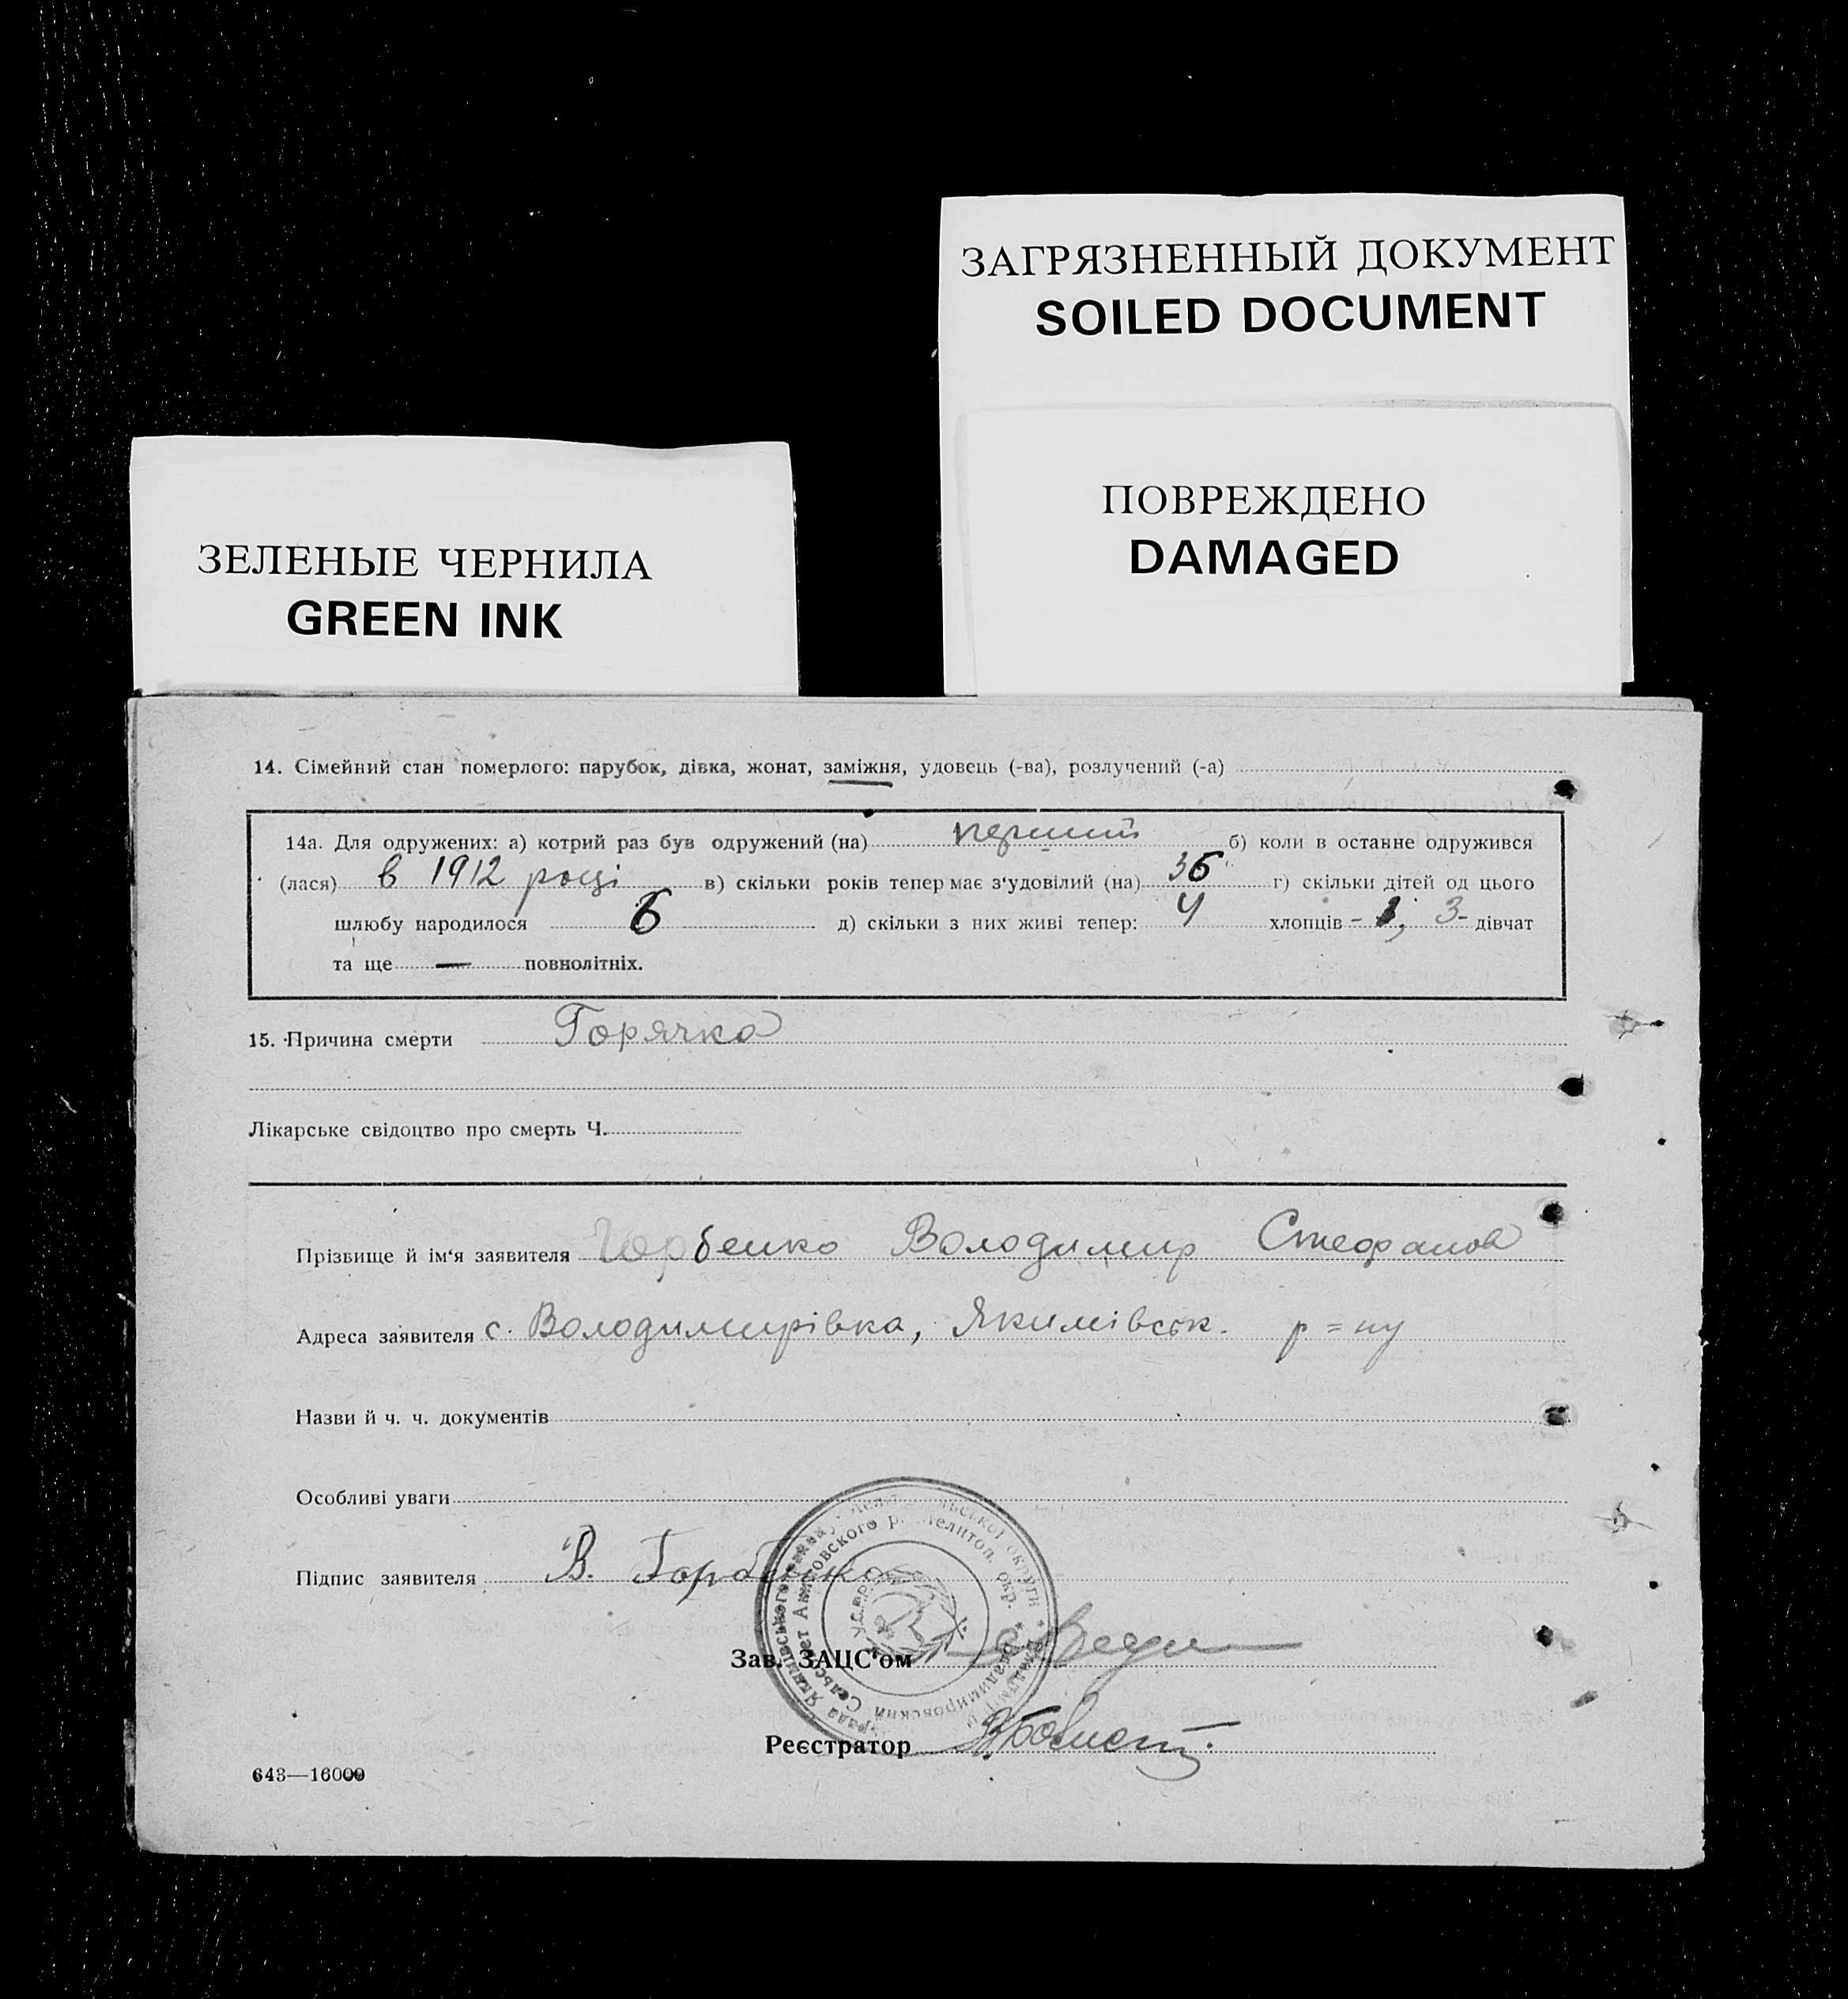 ЗАГРЯЗНЕННЫЙ ДОКУМЕНТ
SOILED DOCUMENT
ПОВРЕЖДЕНО
DAMAGED
ЗЕЛЕНЫЕ ЧЕРНИЛА
GREEN INK
14. Сімейний стан померлого: парубок, дівка, жонат, заміжня, удовець (-ва), розлучений (-а)
14а. Для одружених: а) котрий раз був одружений (на) перший б) коли в останне одружився
(лася) в 1912 році в) скільки років тепер має з'удовілий (на) 36 г) скільки дітей од цього
шлюбу народилося 6 д) скільки з них живі тепер: 4 хлопців - 1, 3 - дівчат
та ще — повнолітніх.
15. Причина смерти Горячка
Лікарське свідоцтво про смерть Ч.
Прізвище й ім'я заявителя Горбенко Володимир Стефанов
Адреса заявителя с. Володимирівка, Якимівськ. р=ну
Назви й ч. ч. документів
Особливі уваги
Підпис заявителя В. Горбенко
Зав. ЗАЦС'ом
Реєстратор
643—16000